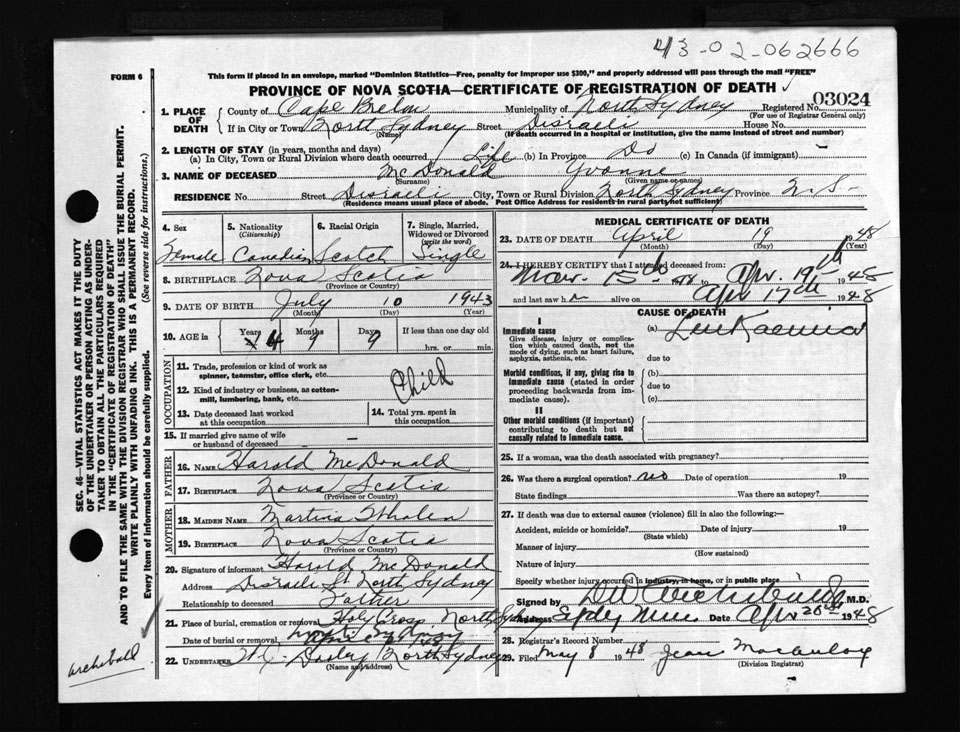 43-02-062666
FORM 6
This form if placed in an envelope, marked "Dominion Statistics—Free, penalty for improper use $300," and properly addressed will pass through the mail "FREE"
PROVINCE OF NOVA SCOTIA—CERTIFICATE OF REGISTRATION OF DEATH
Registered No. 03024
(For use of Registrar General only)
1. PLACE OF DEATH
County of Cape Breton Municipality of North Sydney
If in City or Town North Sydney Street Disraeli House No.
(Name) (If death occurred in a hospital or institution, give the name instead of street and number)
2. LENGTH OF STAY (in years, months and days)
(a) In City, Town or Rural Division where death occurred Life (b) In Province Do (c) In Canada (if immigrant)
3. NAME OF DECEASED McDonald Yvonne
(Surname) (Given name or names)
RESIDENCE No. Street Disraeli City, Town or Rural Division North Sydney Province N.S.
(Residence means usual place of abode. Post Office Address for residents in rural parts not sufficient)
4. Sex Female
5. Nationality (Citizenship) Canadian
6. Racial Origin Scotch
7. Single, Married, Widowed or Divorced (write the word) Single
8. BIRTHPLACE Nova Scotia
(Province or Country)
9. DATE OF BIRTH July 10 1943
(Month) (Day) (Year)
10. AGE in Years 4 Months 9 Days 9 If less than one day old
hrs. or min.
OCCUPATION
11. Trade, profession or kind of work as spinner, teamster, office clerk, etc.
Child
12. Kind of industry or business, as cotton-mill, lumbering, bank, etc.
13. Date deceased last worked at this occupation
14. Total yrs. spent in this occupation
15. If married give name of wife or husband of deceased —
FATHER
16. NAME Harold McDonald
17. BIRTHPLACE Nova Scotia
(Province or Country)
MOTHER
18. MAIDEN NAME Martina Whalen
19. BIRTHPLACE Nova Scotia
(Province or Country)
20. Signature of informant Harold McDonald
Address Disraeli St North Sydney
Relationship to deceased Father
21. Place of burial, cremation or removal Holy Cross North Sydney
Date of burial or removal
22. UNDERTAKER Dooley North Sydney
(Name and address)
MEDICAL CERTIFICATE OF DEATH
23. DATE OF DEATH April 19 1948
(Month) (Day) (Year)
24. I HEREBY CERTIFY that I attended deceased from:
Mar. 15th 1948 to Apr. 19th 1948
and last saw h alive on Apr 17th 1948
CAUSE OF DEATH
I
Immediate cause
Give disease, injury or complication which caused death, not the mode of dying, such as heart failure, asphyxia, asthenia, etc.
(a) Leukaemia
due to
Morbid conditions, if any, giving rise to immediate cause (stated in order proceeding backwards from immediate cause).
(b)
due to
(c)
II
Other morbid conditions (if important) contributing to death but not causally related to immediate cause.
25. If a woman, was the death associated with pregnancy?
26. Was there a surgical operation? no Date of operation 19
State findings Was there an autopsy?
27. If death was due to external causes (violence) fill in also the following:—
Accident, suicide or homicide? Date of injury 19
(State which)
Manner of injury
(How sustained)
Nature of injury
Specify whether injury occurred in industry, in home, or in public place
Signed by M.D.
Address Sydney Mines Date Apr 20th 1948
28. Registrar's Record Number
29. Filed May 8 1948 Jean Macaulay
(Division Registrar)
SEC. 46—VITAL STATISTICS ACT MAKES IT THE DUTY
OF THE UNDERTAKER OR PERSON ACTING AS UNDER-
TAKER TO OBTAIN ALL THE PARTICULARS REQUIRED
IN THE "CERTIFICATE OF REGISTRATION OF DEATH"
AND TO FILE THE SAME WITH THE DIVISION REGISTRAR WHO SHALL ISSUE THE BURIAL PERMIT.
WRITE PLAINLY WITH UNFADING INK. THIS IS A PERMANENT RECORD.
Every item of information should be carefully supplied. (See reverse side for instructions.)
Archibald